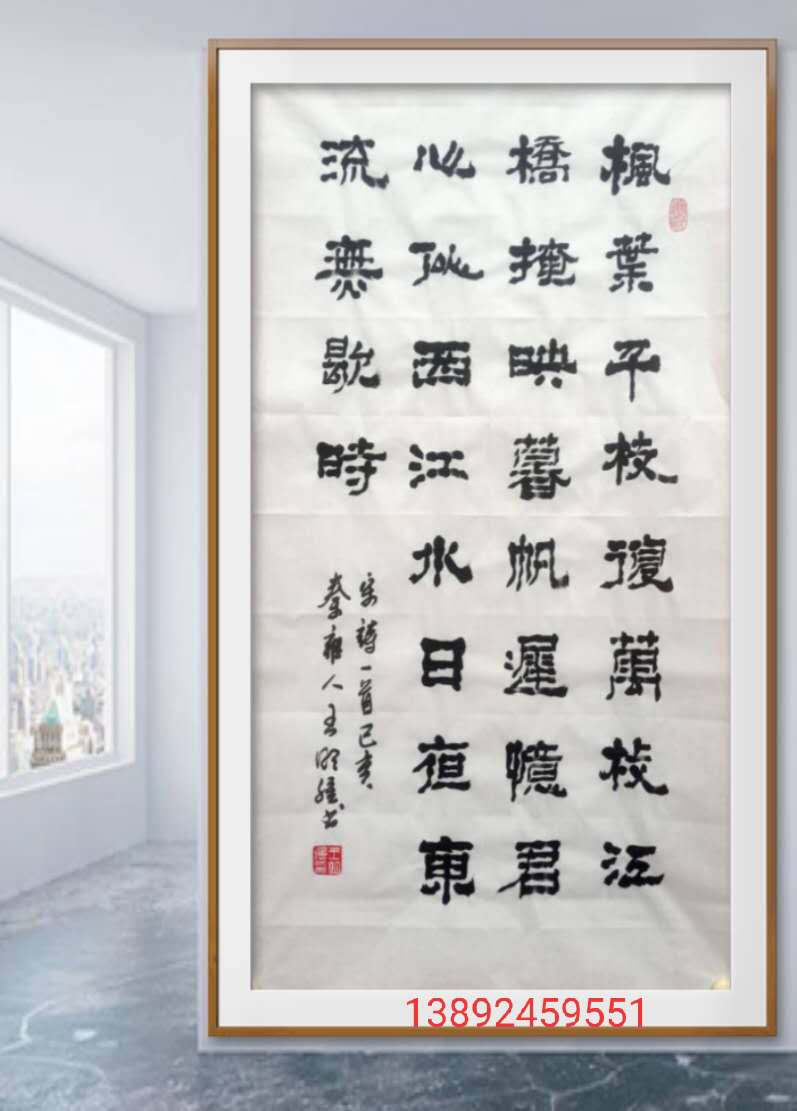 楓葉千枝復萬枝江
橋掩映暮帆遲憶君
心似西江水日夜東
流無歇時
宋詩一首己亥
秦雍人王明書
13892459551